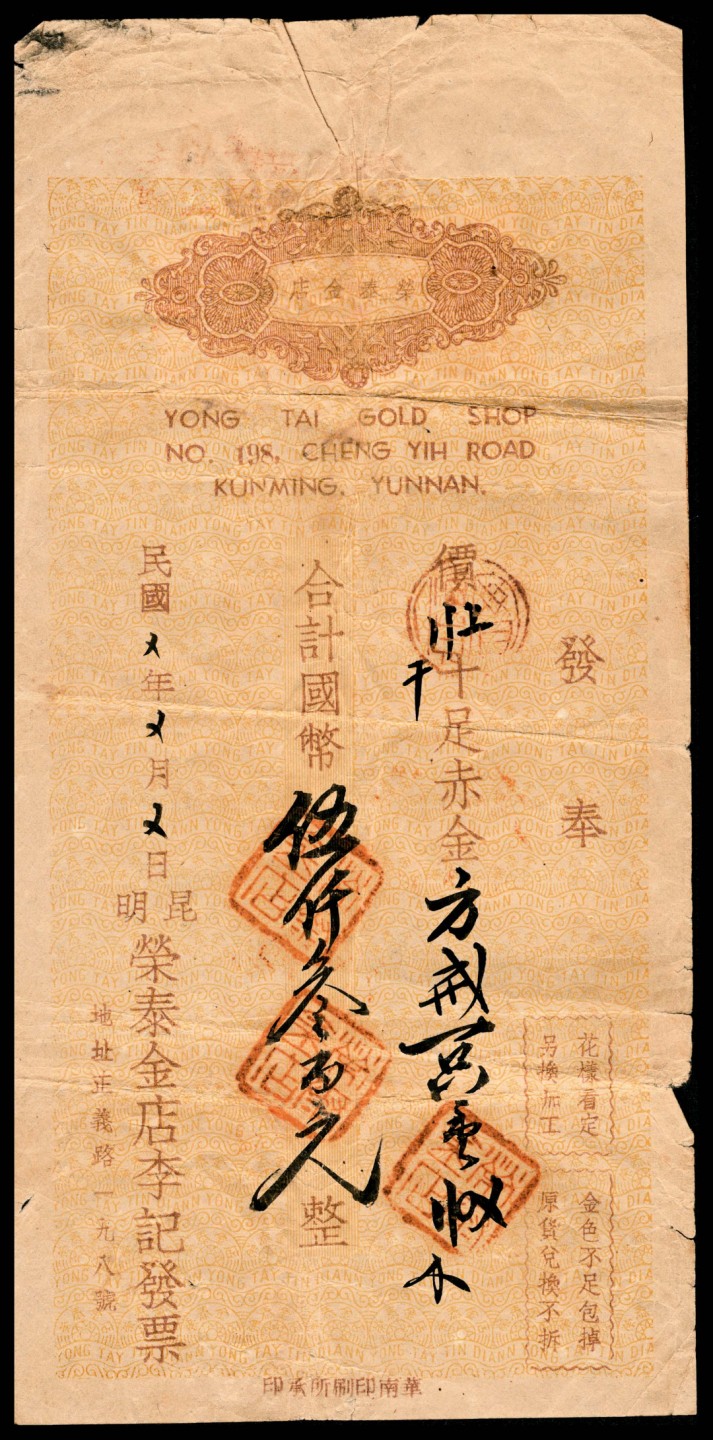 榮泰金店
YONG TAI GOLD SHOP
NO. 198, CHENG YIH ROAD
KUNMING, YUNNAN.
發奉
價 十足赤金方戒
合計國幣伍仟叁百元整
民國 年 月 日
昆明
榮泰金店李記發票
地址正義路一九八號
花樣看定
另換加工
金色不足包掉
原貨兌換不拆
華南印刷所承印